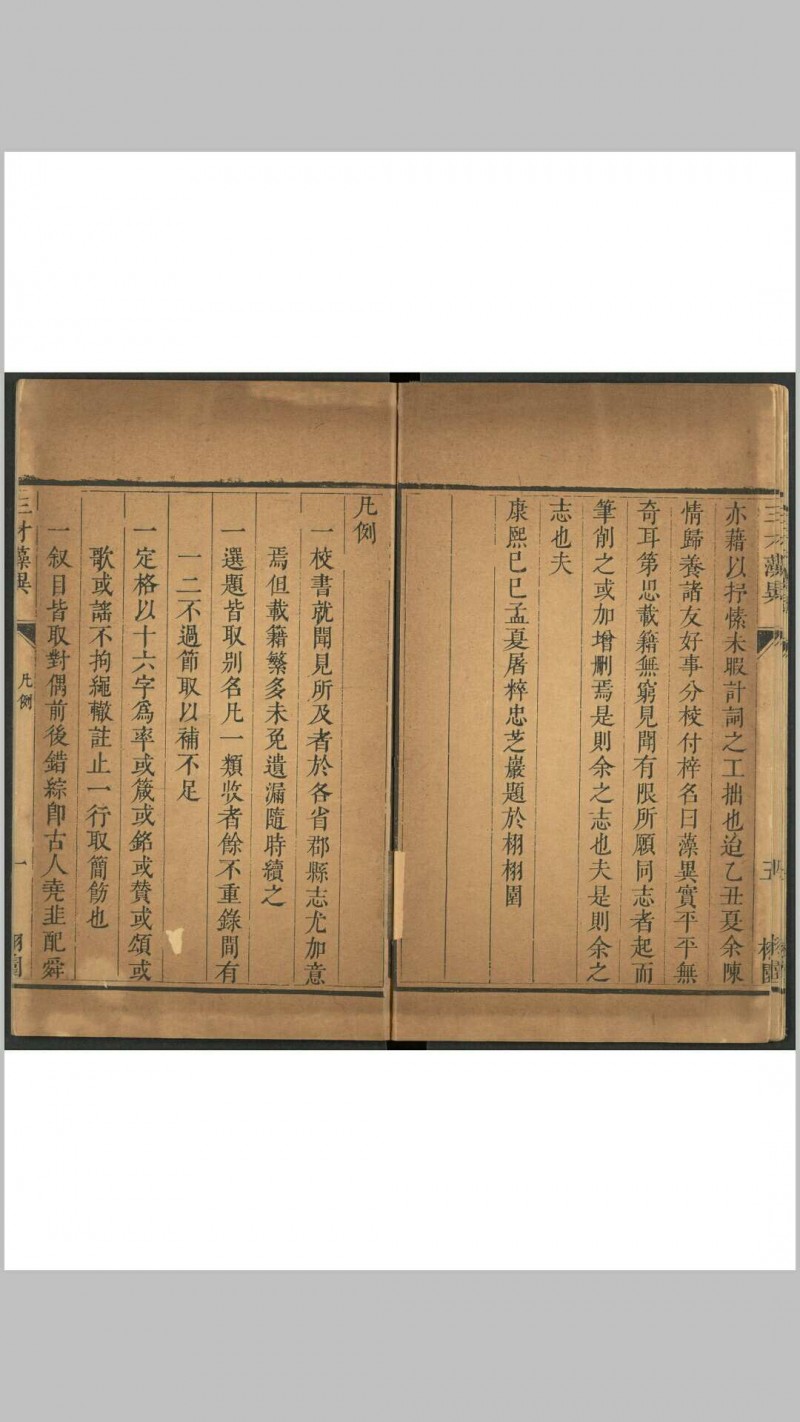 亦藉以抒愫未暇計詞之工拙也迨乙丑夏余陳
情歸養諸友好事分梭付梓名曰藻異實平平無
奇耳第思載籍無窮見聞有限所願同志者起而
筆削之或加增刪焉是則余之志也夫是則余之
志也夫
康熙己巳孟夏屠粹忠芝巖題於栩栩園
凡例
一校書就聞見所及者於各省郡縣志尤加意
焉但載籍繁多未免遺漏隨時續之
一選題皆取别名凡一類收者餘不重錄間有
一二不過節取以補不足
一定格以十六字爲率或箴或銘或贊或頌或
歌或謠不拘繩轍註止一行取簡飭也
一叙目皆取對偶前後錯綜卽古人堯韭配舜
三才藻異
凡例
一
栩園